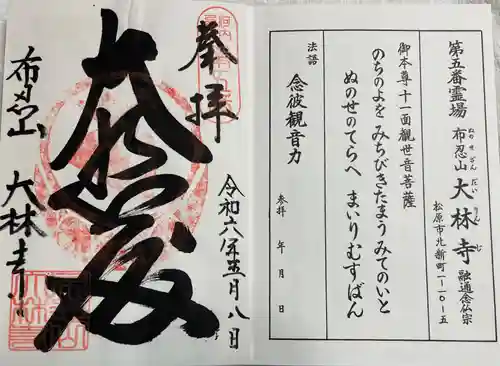 第五番霊場
布忍山 大林寺 融通念仏宗
ぬのせざん だいりんじ
松原市北新町一-一〇-五
御本尊十一面観世音菩薩
のちのよを みちびきたまう みてのいと
ぬのせのてらへ まいりむすばん
法語
念彼観音力
参拝 年 月 日
奉拝
令和六年五月八日
大悲殿
布忍山
大林寺